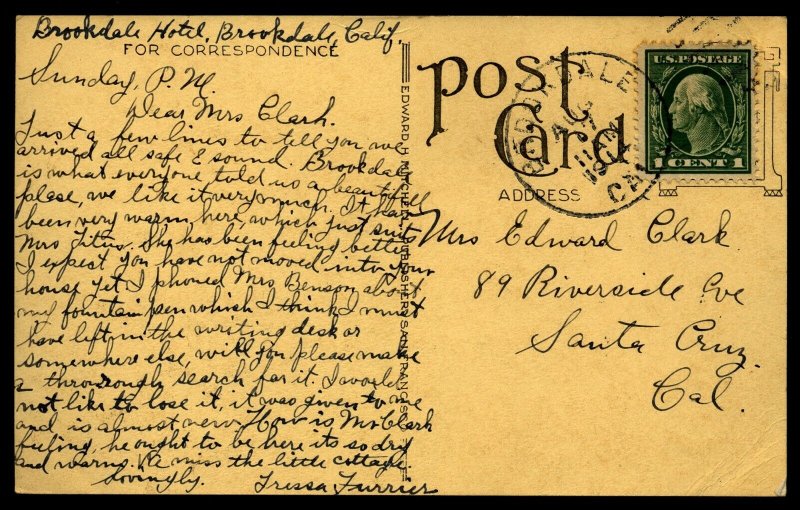 Brookdale Hotel, Brookdale, Calif,
FOR CORRESPONDENCE
Sunday, P. M.
Dear Mrs Clark.
Just a few lines to tell you we
arrived all safe & sound. Brookdale
is what everyone told us a beautifull
plase, we like it very much. It has
been very warm here, which just suits
Mrs Titus. She has been feeling better
I expect you have not moved into your
house yet I phoned Mrs Benson about
my fountain pen which I think I must
have left in the writing desk or
somewhere else, will you please make
a thourough search for it. I would
not like to lose it, it was given to me
and is almost new. How is Mr Clark
feeling, he ought to be here its so dry
and warm. We miss the little cottage.
Lovingly. Tressa Furrier
EDWARD H. MITCHELL, PUBLISHER, SAN FRANCISCO
Post
Card
ADDRESS
BROOKDALE
CAL
U.S. POSTAGE
1 CENT 1
Mrs Edward Clark
89 Riverside Ave
Santa Cruz.
Cal.